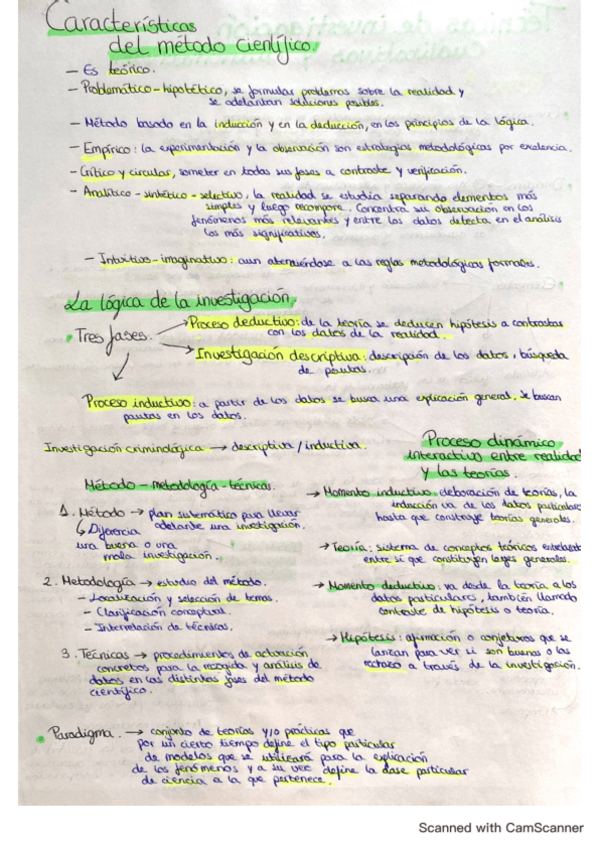 Características
del método científico.
- Es teórico.
- Problemático-hipotético, se formular problemas sobre la realidad y
se adelantan soluciones posibles.
- Método basado en la inducción y en la deducción, en los principios de la lógica.
- Empírico: la experimentación y la observación son estrategias metodológicas por excelencia.
- Crítico y circular, someter en todas sus fases a contraste y verificación.
- Analítico-sintético-selectivo, la realidad se estudia separando elementos más
simples y luego recompore. Concentra su observación en los
fenómenos más relevantes y entre los datos detecta en el análisis
los más significativos.
- Intuitivo-imaginativo: aun ateniéndose a las reglas metodológicas formales.
La lógica de la investigación.
Tres fases.
→ Proceso deductivo: de la teoría se deducen hipótesis a contrastar
con los datos de la realidad.
→ Investigación descriptiva: descripción de los datos, búsqueda
de pautas.
Proceso inductivo: a partir de los datos se busca una explicación general, se buscan
pautas en los datos.
Investigación criminológica → descriptiva / inductiva.
Método - metodología - técnicas.
1. Método → plan sistemático para llevar
adelante una investigación.
↳ Diferencia
una buena o una
mala investigación.
2. Metodología → estudio del método.
- Localización y selección de temas.
- Clarificación conceptual.
- Interrelación de técnicas.
3. Técnicas → procedimientos de actuación
concretos para la recogida y análisis de
datos en las distintas fases del método
científico.
Proceso dinámico
interactivo entre realidad
y las teorías.
→ Momento inductivo: elaboración de teorías, la
inducción va de los datos particulares
hasta que construye teorías generales.
→ Teoría: sistema de conceptos teóricos
entre sí que constituyen leyes generales.
→ Momento deductivo: va desde la teoría a los
datos particulares, también llamado
contraste de hipótesis o teoría.
→ Hipótesis: afirmación o conjeturas que se
lanzan para ver si son buenas o las
rechazo a través de la investigación.
Paradigma. → conjunto de teorías y/o prácticas que
por un cierto tiempo define el tipo particular
de modelos que se utilizará para la explicación
de los fenómenos y a su vez define la clase particular
de ciencia a la que pertenece.
Scanned with CamScanner